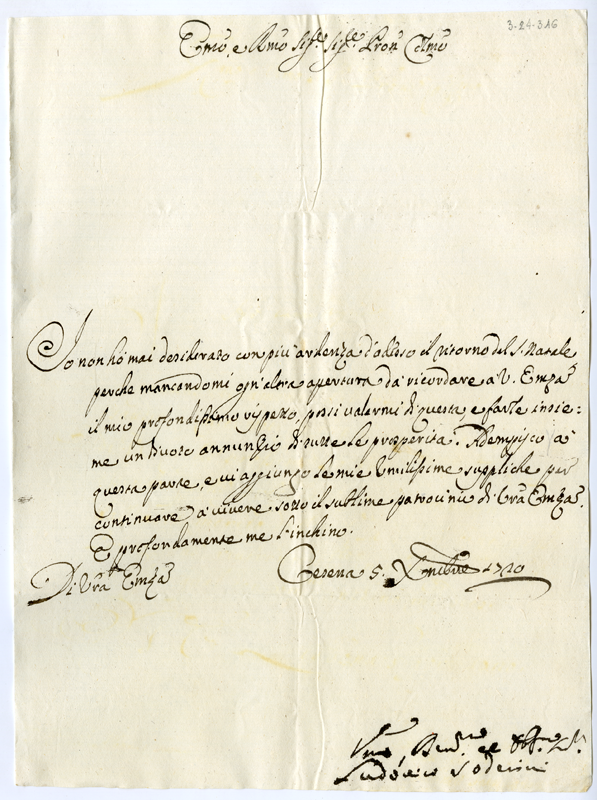 3-24-316
Emo, e Rmo Sigre. Sigre. Pron Colmo
Io non hò mai desiderato con più ardenza d'adesso il ritorno del S. Natale
perche mancandomi ogn'altra apertura dà ricordare a V. Emza
il mio profondissimo rispetto, possi valermi di questa e farle insie=
me un divoto annunzio di tutte le prosperità. Adempisco a
questa parte, e vi aggiungo le mie umilissime suppliche per
continuare à vivere sotto il sublime patrocinio di Vra Emza.
E profondamente me l'inchino.
Di Vra Emza Cesena 5. Xmbre 1720
Vmo, Devmo et
Ludovico Soderini